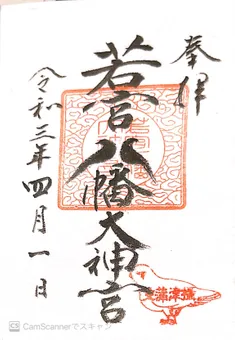 奉拝
若宮八幡大神宮
令和三年四月一日
摂津蒲生
CamScannerでスキャン